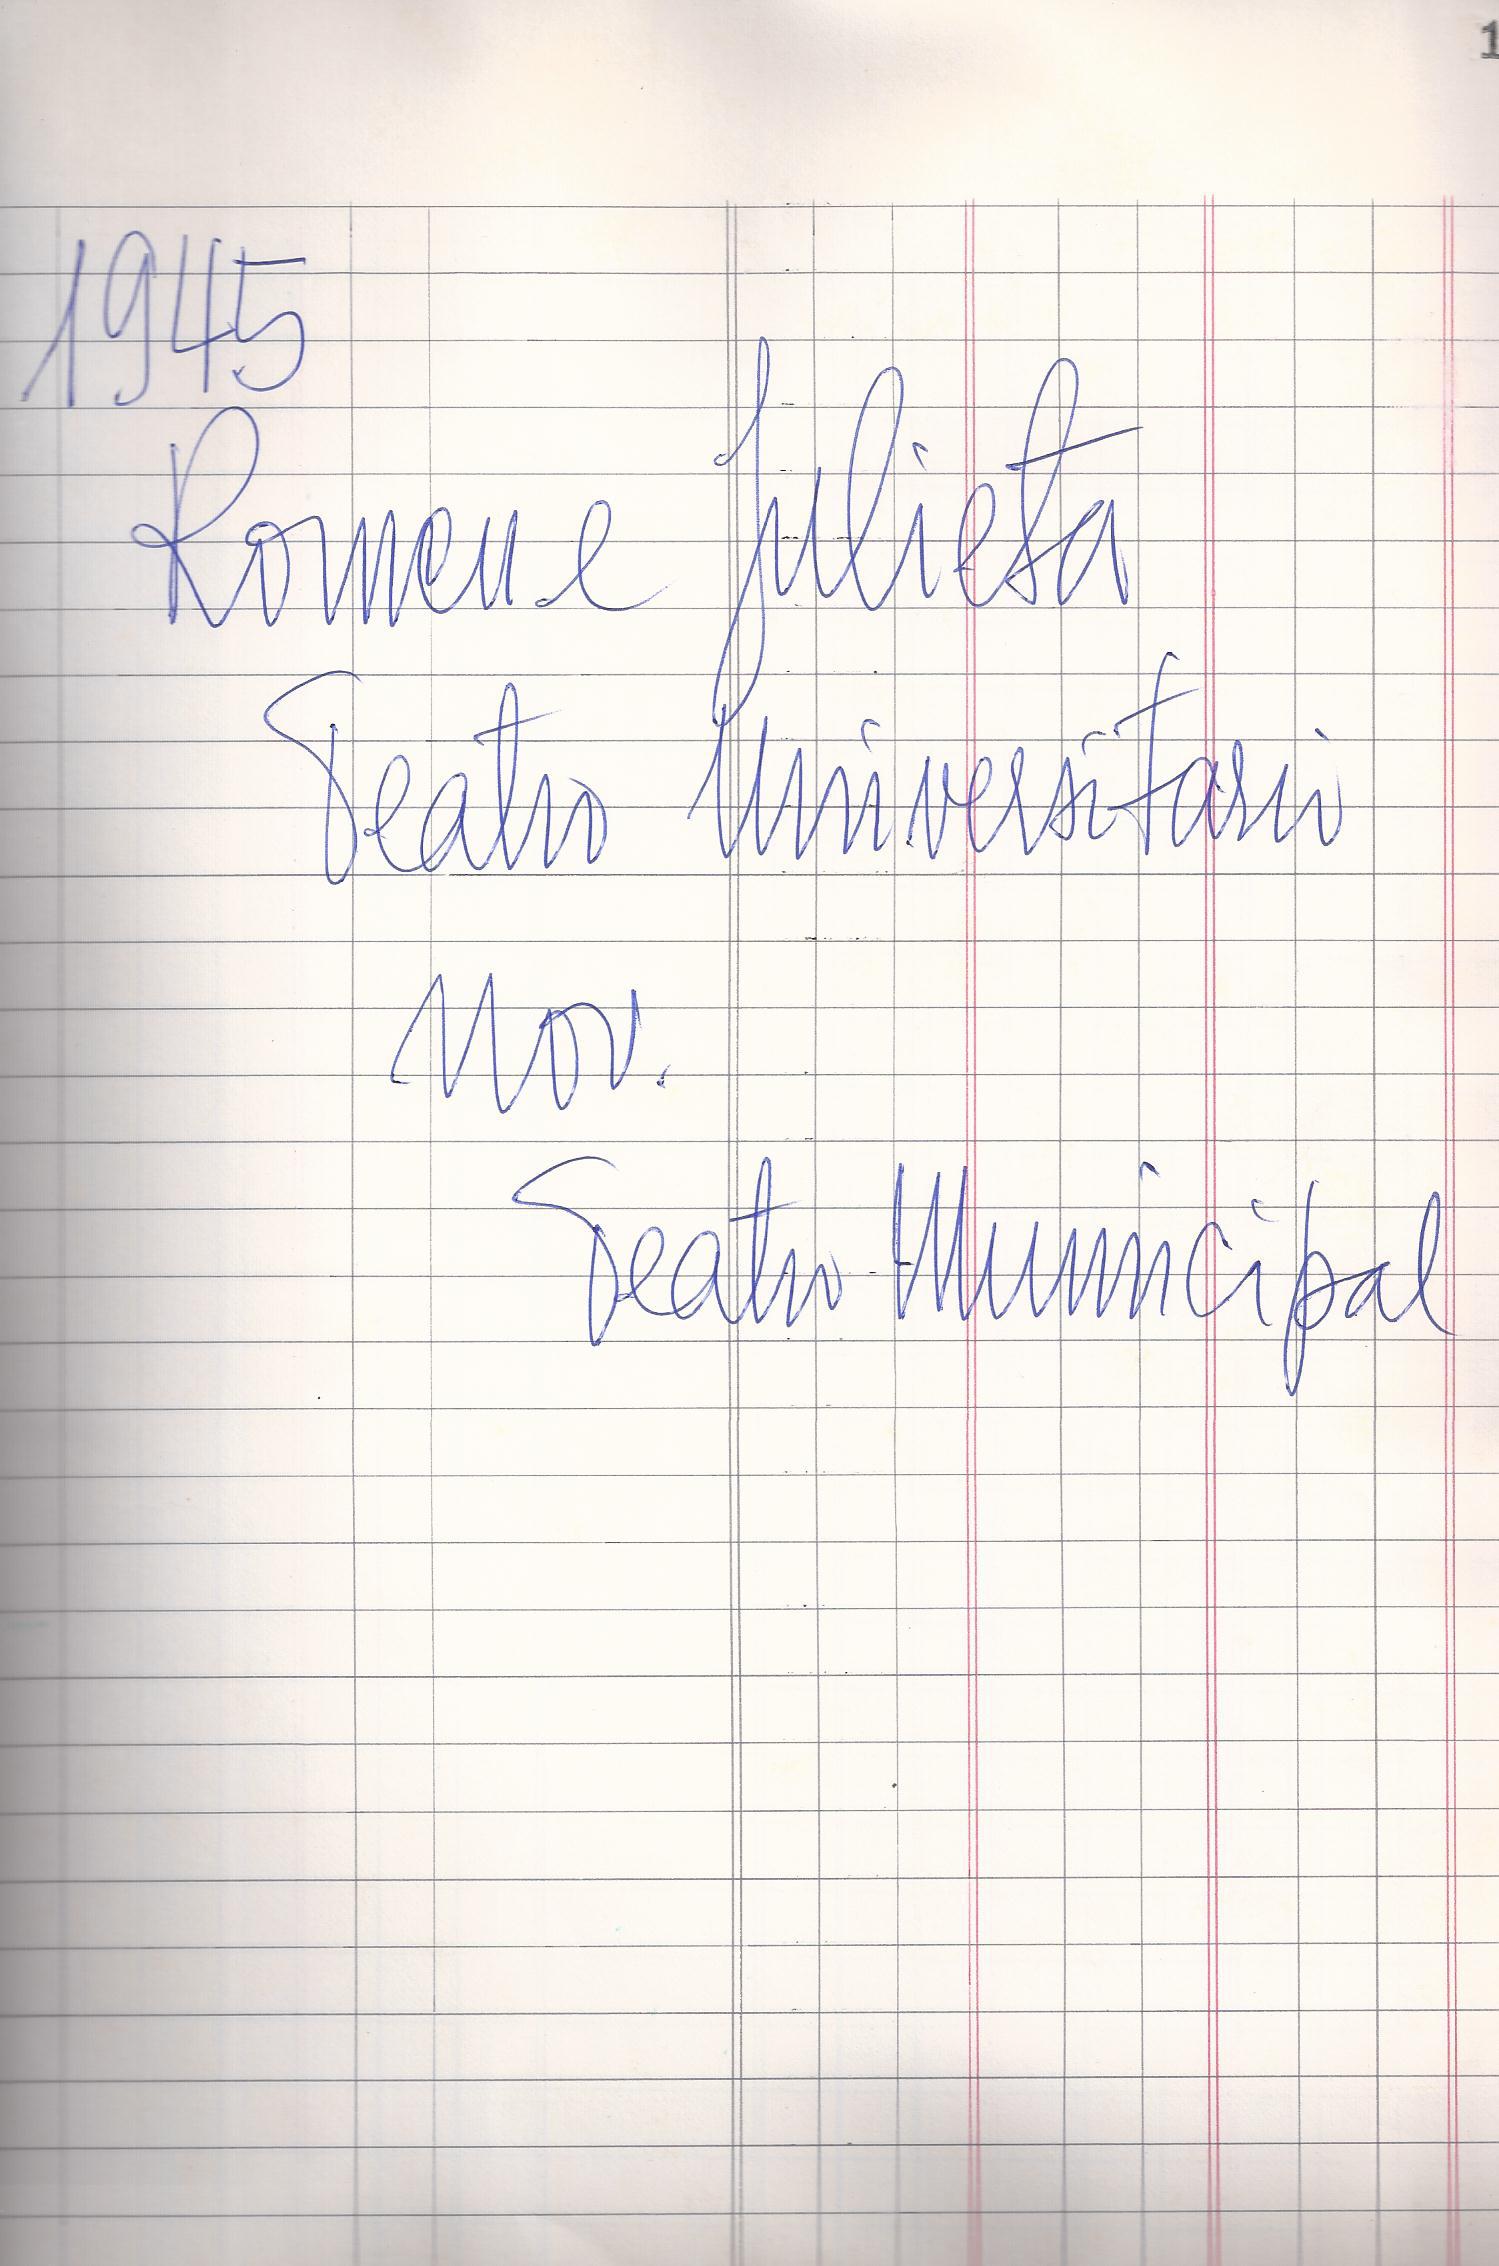 1
1945
Romeu e Julieta
Teatro Universitario
Nov.
Teatro Municipal